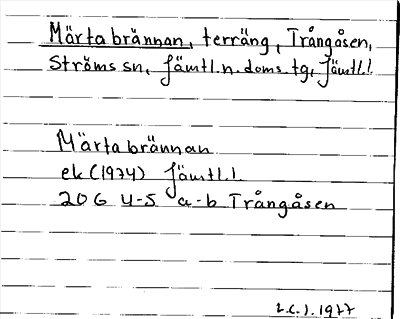 Märtabrännan, terräng, Trångåsen,
Ströms sn, Jämtl. n. doms. tg, Jämtl. l.
Märtabrännan
ek (1974) Jämtl. l.
20 G 4-5 a-b Trångåsen
1977